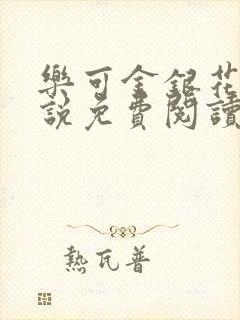 樂可金銀花
說免費閱讀
熱瓦普